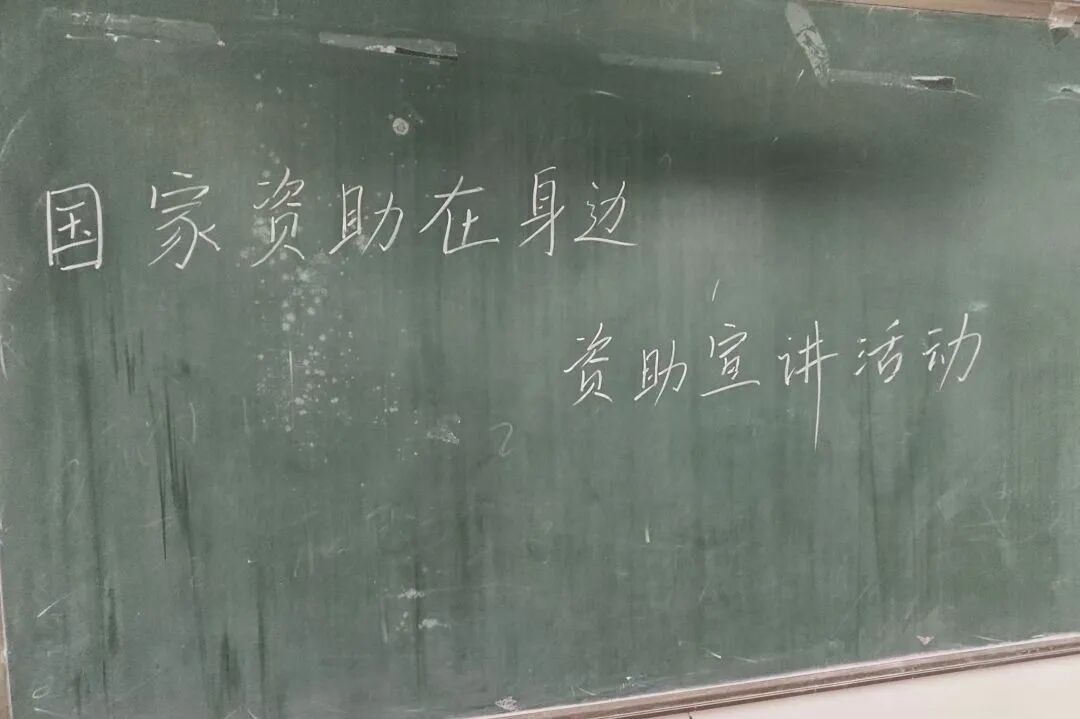 国家资助在身边
资助宣讲活动